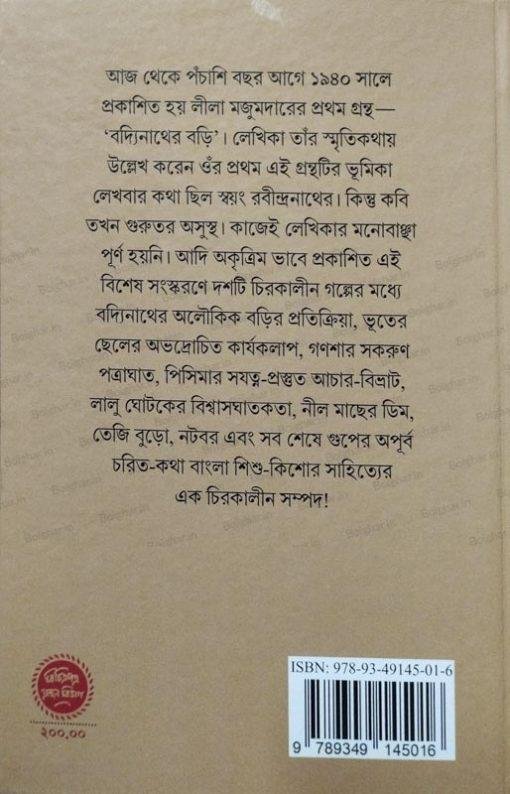 আজ থেকে পঁচাশি বছর আগে ১৯৪০ সালে
প্রকাশিত হয় লীলা মজুমদারের প্রথম গ্রন্থ—
‘বদ্যিনাথের বড়ি’। লেখিকা তাঁর স্মৃতিকথায়
উল্লেখ করেন ওঁর প্রথম এই গ্রন্থটির ভূমিকা
লেখবার কথা ছিল স্বয়ং রবীন্দ্রনাথের। কিন্তু কবি
তখন গুরুতর অসুস্থ। কাজেই লেখিকার মনোবাঞ্ছা
পূর্ণ হয়নি। আদি অকৃত্রিম ভাবে প্রকাশিত এই
বিশেষ সংস্করণে দশটি চিরকালীন গল্পের মধ্যে
বদ্যিনাথের অলৌকিক বড়ির প্রতিক্রিয়া, ভূতের
ছেলের অভদ্রোচিত কার্যকলাপ, গণশার সকরুণ
পত্রাঘাত, পিসিমার সযত্ন-প্রস্তুত আচার-বিভ্রাট,
লালু ঘোটকের বিশ্বাসঘাতকতা, নীল মাছের ডিম,
তেজি বুড়ো, নটবর এবং সব শেষে গুপের অপূর্ব
চরিত-কথা বাংলা শিশু-কিশোর সাহিত্যের
এক চিরকালীন সম্পদ!
ISBN: 978-93-49145-01-6
9 789349 145016
২০০.০০
Boighar.in